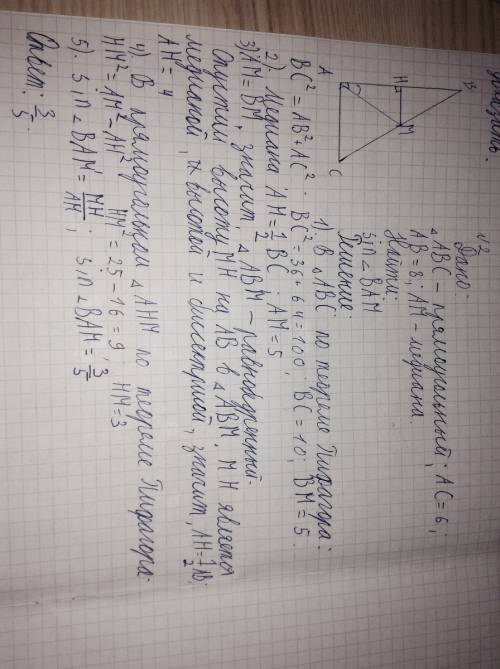 №2
Дано:
△ABC – прямоугольный; AC=6;
AB=8; AM – медиана.
Найти:
sin∠BAM
Решение:
1) В △ABC по теореме Пифагора:
BC²=AB²+AC² · BC²=36+64=100; BC=10; BM=5
2) Медиана AH=1/2 BC; AM=5
3) AM=BM, значит, △ABM – равнобедренный.
Опустим высоту MH на AB в △ABM. MH является
медианой, и высотой и биссектрисой, значит, AH=1/2 AB;
AH=4
4) В прямоугольном △AHM по теореме Пифагора:
HM²=AM²-AH² HM²=25-16=9; HM=3
5). sin∠BAM=MH/AM; sin∠BAM=3/5
Ответ: 3/5.
A
H
B
M
C